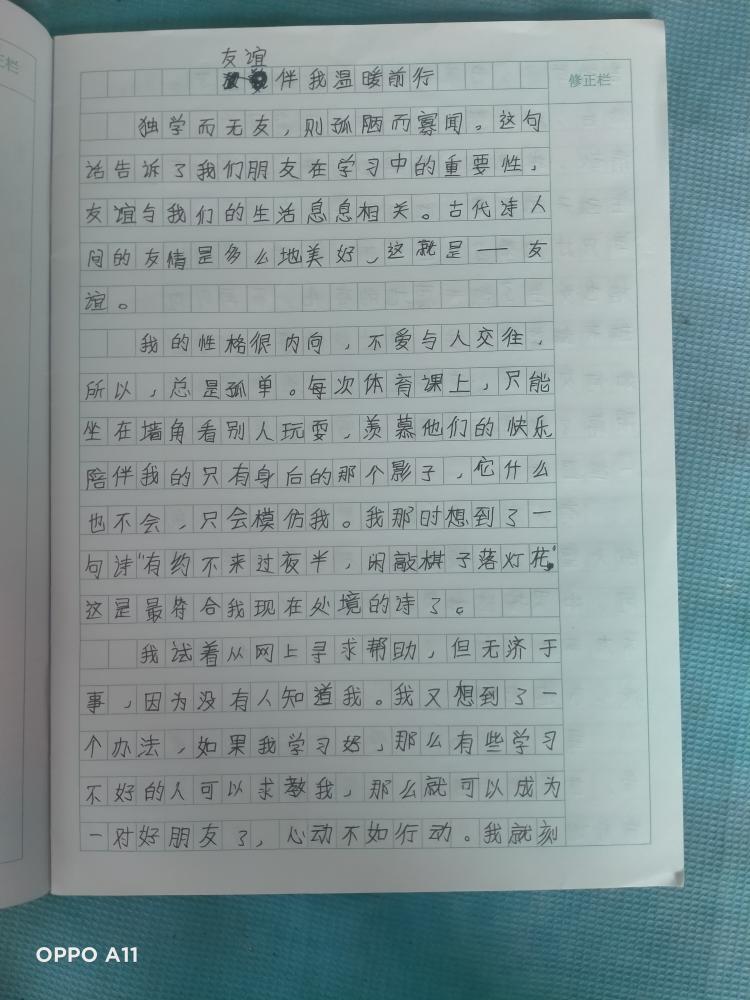 正栏
友谊
伴我温暖前行
修正栏
独学而无友，则孤陋而寡闻。这句
话告诉了我们朋友在学习中的重要性，
友谊与我们的生活息息相关。古代诗人
间的友情是多么地美好，这就是——友
谊。
我的性格很内向，不爱与人交往，
所以，总是孤单。每次体育课上，只能
坐在墙角看别人玩耍，羡慕他们的快乐
陪伴我的只有身后的那个影子，它什么
也不会，只会模仿我。我那时想到了一
句诗"有约不来过夜半，闲敲棋子落灯花"
这是最符合我现在处境的诗了。
我试着从网上寻求帮助，但无济于
事，因为没有人知道我。我又想到了一
个办法，如果我学习好，那么有些学习
不好的人可以求教我，那么就可以成为
一对好朋友了，心动不如行动。我就刻
OPPO A11